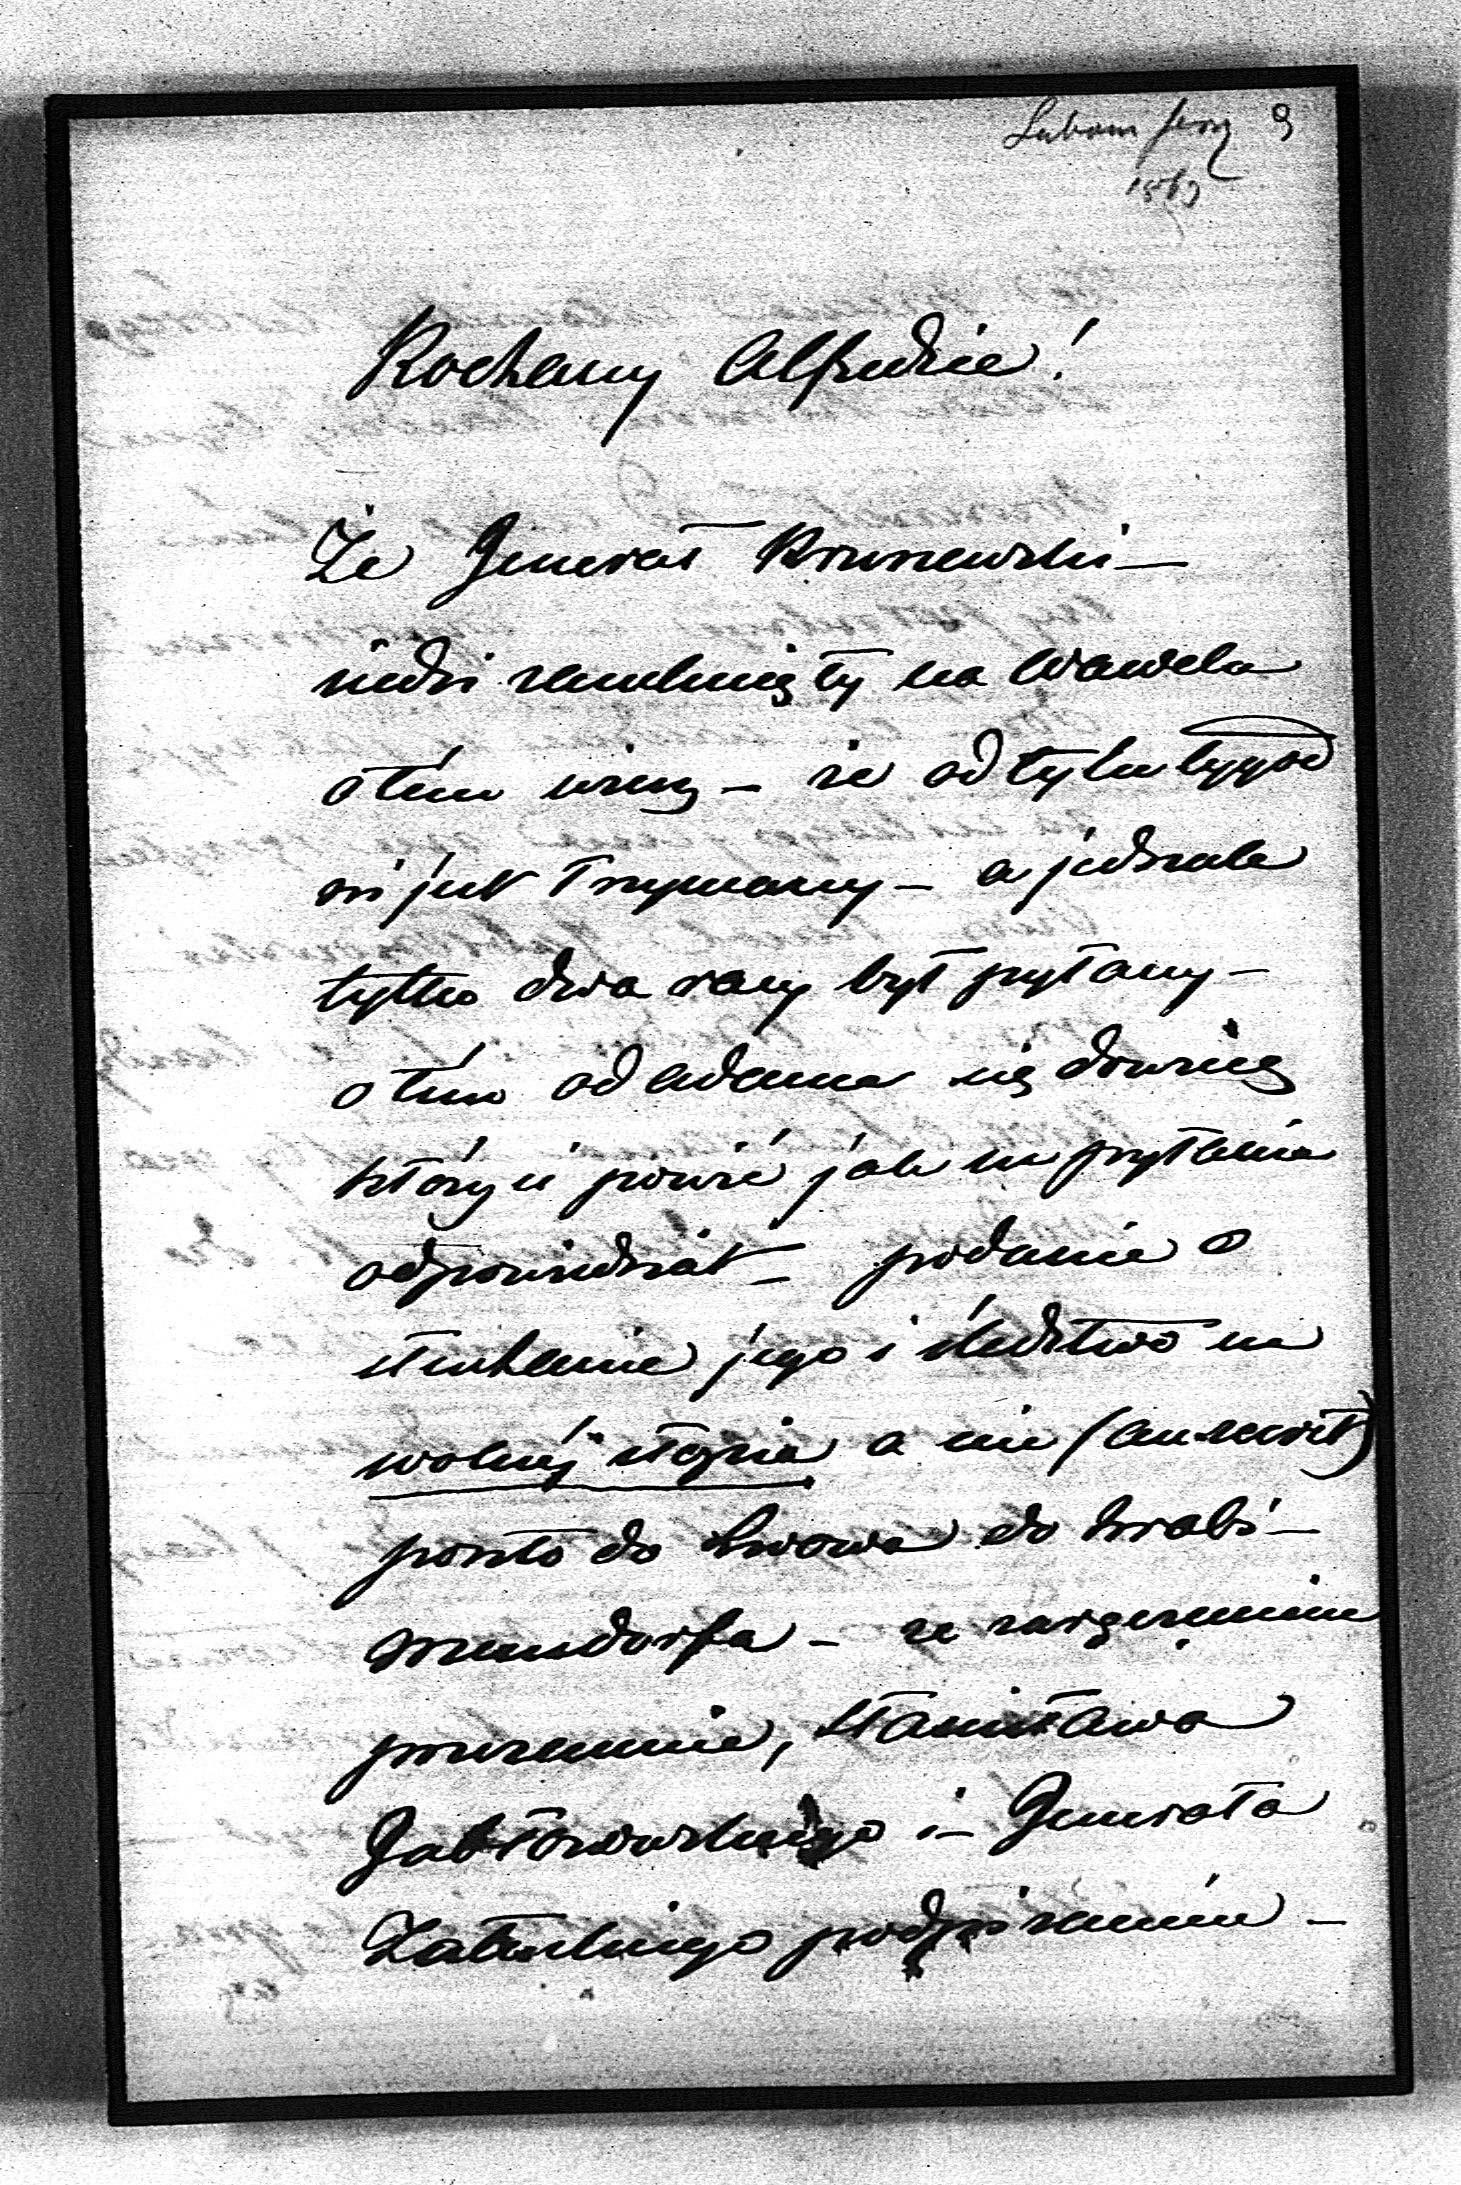 9
Kochany Alfredzie!
Że Generał Kruszewski –
siedzi zamknięty na Wawelu
o tém wiesz – że od tylu tygod
ni jest trzymany – a jednak
tylko dwa razy był pytany –
o tém od Adama się dowiesz
który ci powie jak na pytania
odpowiedział – podanie o
słuchanie jego i śledztwo na
wolnéj stopie a nie
poszło do Lwowa do hrabi –
Mensdorfa – za zaręczeniem
poruczeniem, Stanisława
Jabłonowskiego i – Generała
Załuskiego podpisaniem –